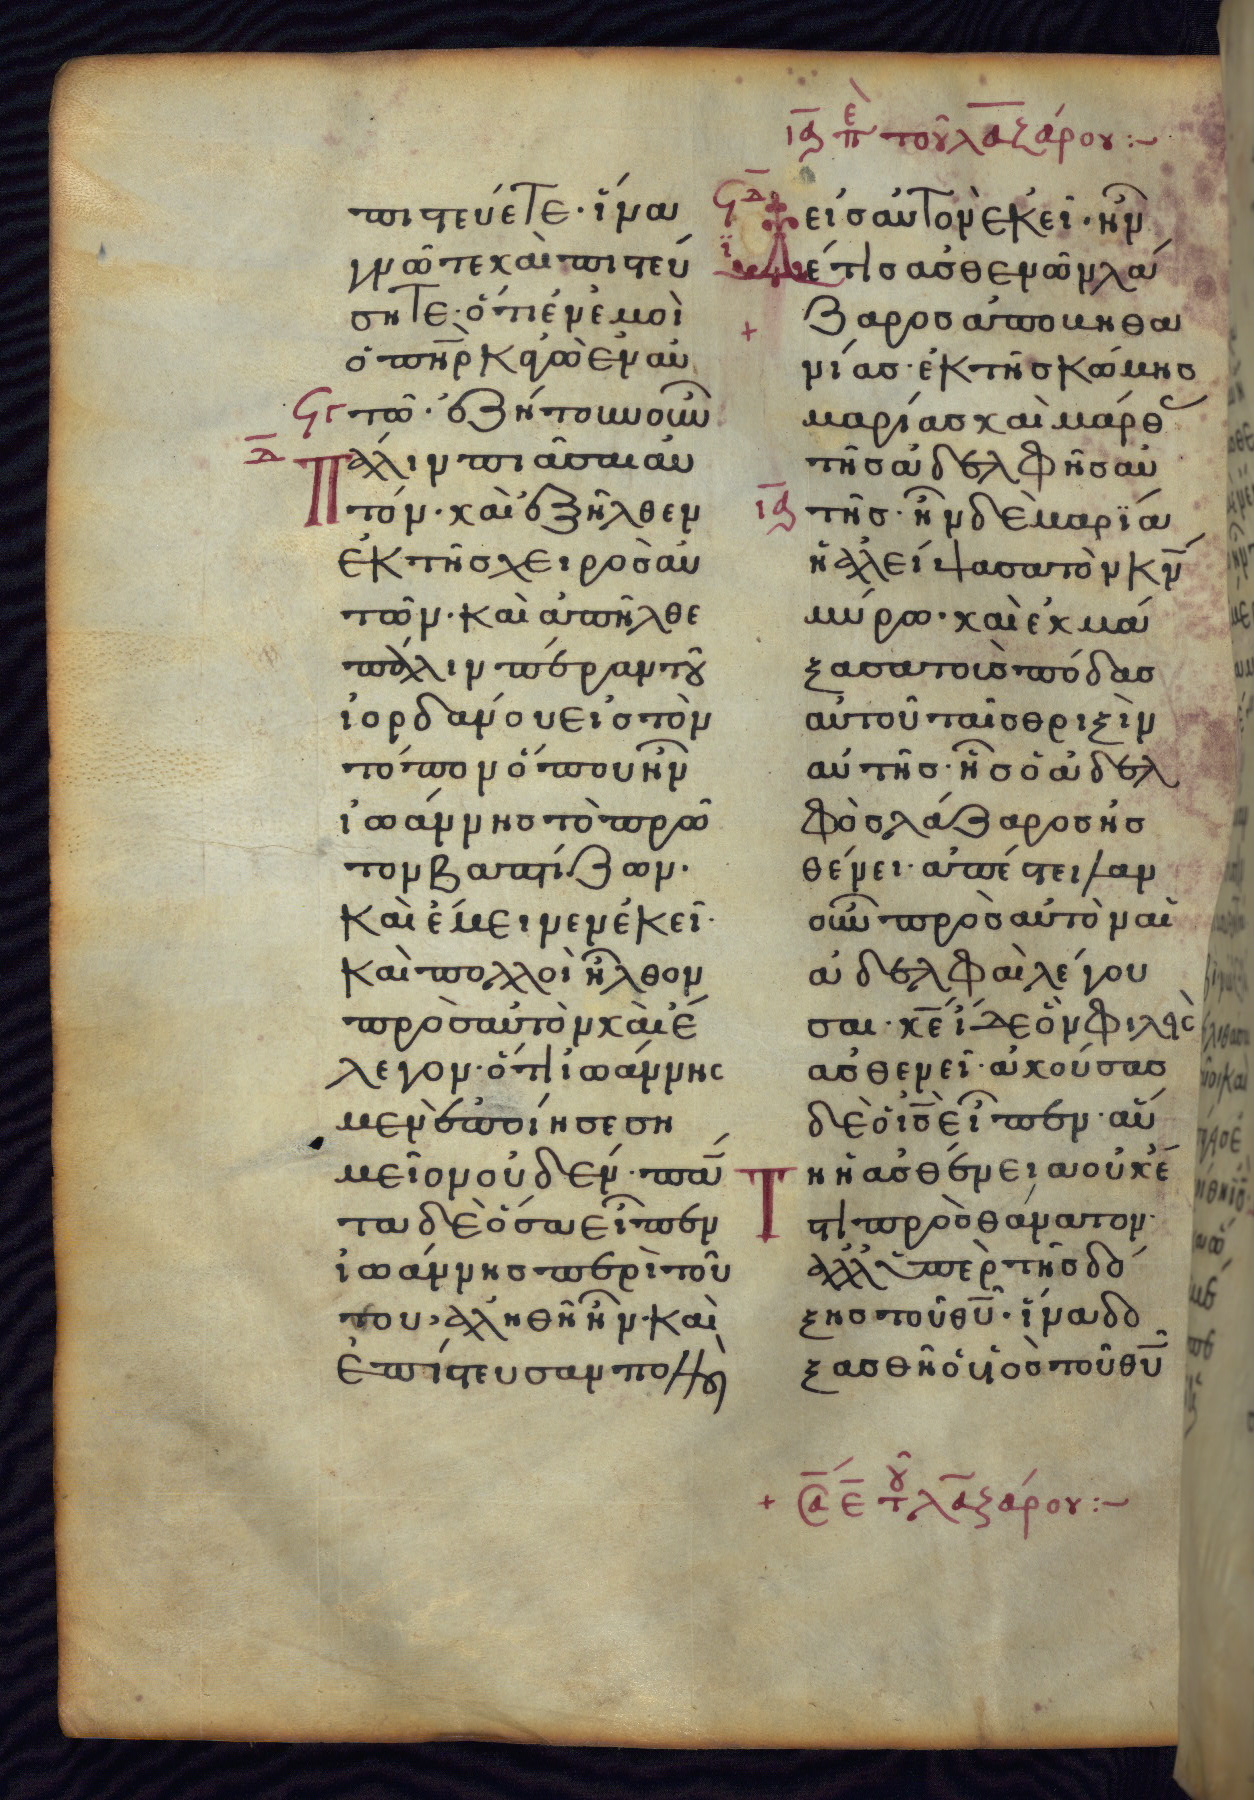 ιθ ἐπ τοῦ λαζάρου :~
πιστεύετε· ἵνα
γνῶτε καὶ πιστεύ
σητε· ὅτι ἐν ἐμοὶ
ὁ πηρ κἀγὼ ἐν αὐ
τῶ· ἐζήτουν οὖν
Πάλιν πιάσαι αὐ
τόν· καὶ ἐξῆλθεν
ἐκ τῆς χειρὸς αὐ
τῶν· καὶ ἀπῆλθε
πάλιν πέραν τοῦ
ἰορδάνου εἰς τὸν
τόπον ὅπου ἦν
ἰωάννης τὸ πρῶ
τον βαπτίζων·
καὶ ἔμεινεν ἐκεῖ·
καὶ πολλοὶ ἦλθον
πρὸς αὐτὸν καὶ ἔ
λεγον· ὅτι ἰωάννης
μὲν ἐποίησε ση
μεῖον οὐδέν· πάν
τα δὲ ὅσα εἶπεν
ἰωάννης περὶ τού
του, ἀληθῆ ἦν· καὶ
ἐπίστευσαν πολλοὶ
εἰς αὐτὸν ἐκεῖ· ἦν
δέ τις ἀσθενῶν λά
ζαρος ἀπὸ βηθα
νίας· ἐκ τῆς κώμης
μαρίας καὶ μάρθ
τῆς ἀδελφῆς αὐ
τῆς· ἦν δὲ μαρία
ἡ ἀλείψασα τὸν κν
μύρω· καὶ ἐκμά
ξασα τοὺς πόδας
αὐτοῦ ταῖς θριξὶν
αὐτῆς· ἧς ὁ ἀδελ
φὸς λάζαρος ἠσ
θένει· ἀπέστειλαν
οὖν πρὸς αὐτὸν αἱ
ἀδελφαὶ λέγου
σαι· κε ἴδε ὃν φιλεῖς
ἀσθενεῖ· ἀκούσας
δὲ ὁ ισ εἶπεν· αὕ
Τη ἡ ἀσθένεια οὐκ ἔ
στι πρὸς θάνατον·
ἀλλ' ὑπὲρ τῆς δό
ξης τοῦ θυ· ἵνα δο
ξασθῆ ὁ υἱὸς τοῦ θυ
+ ε τοῦ λαζάρου :~